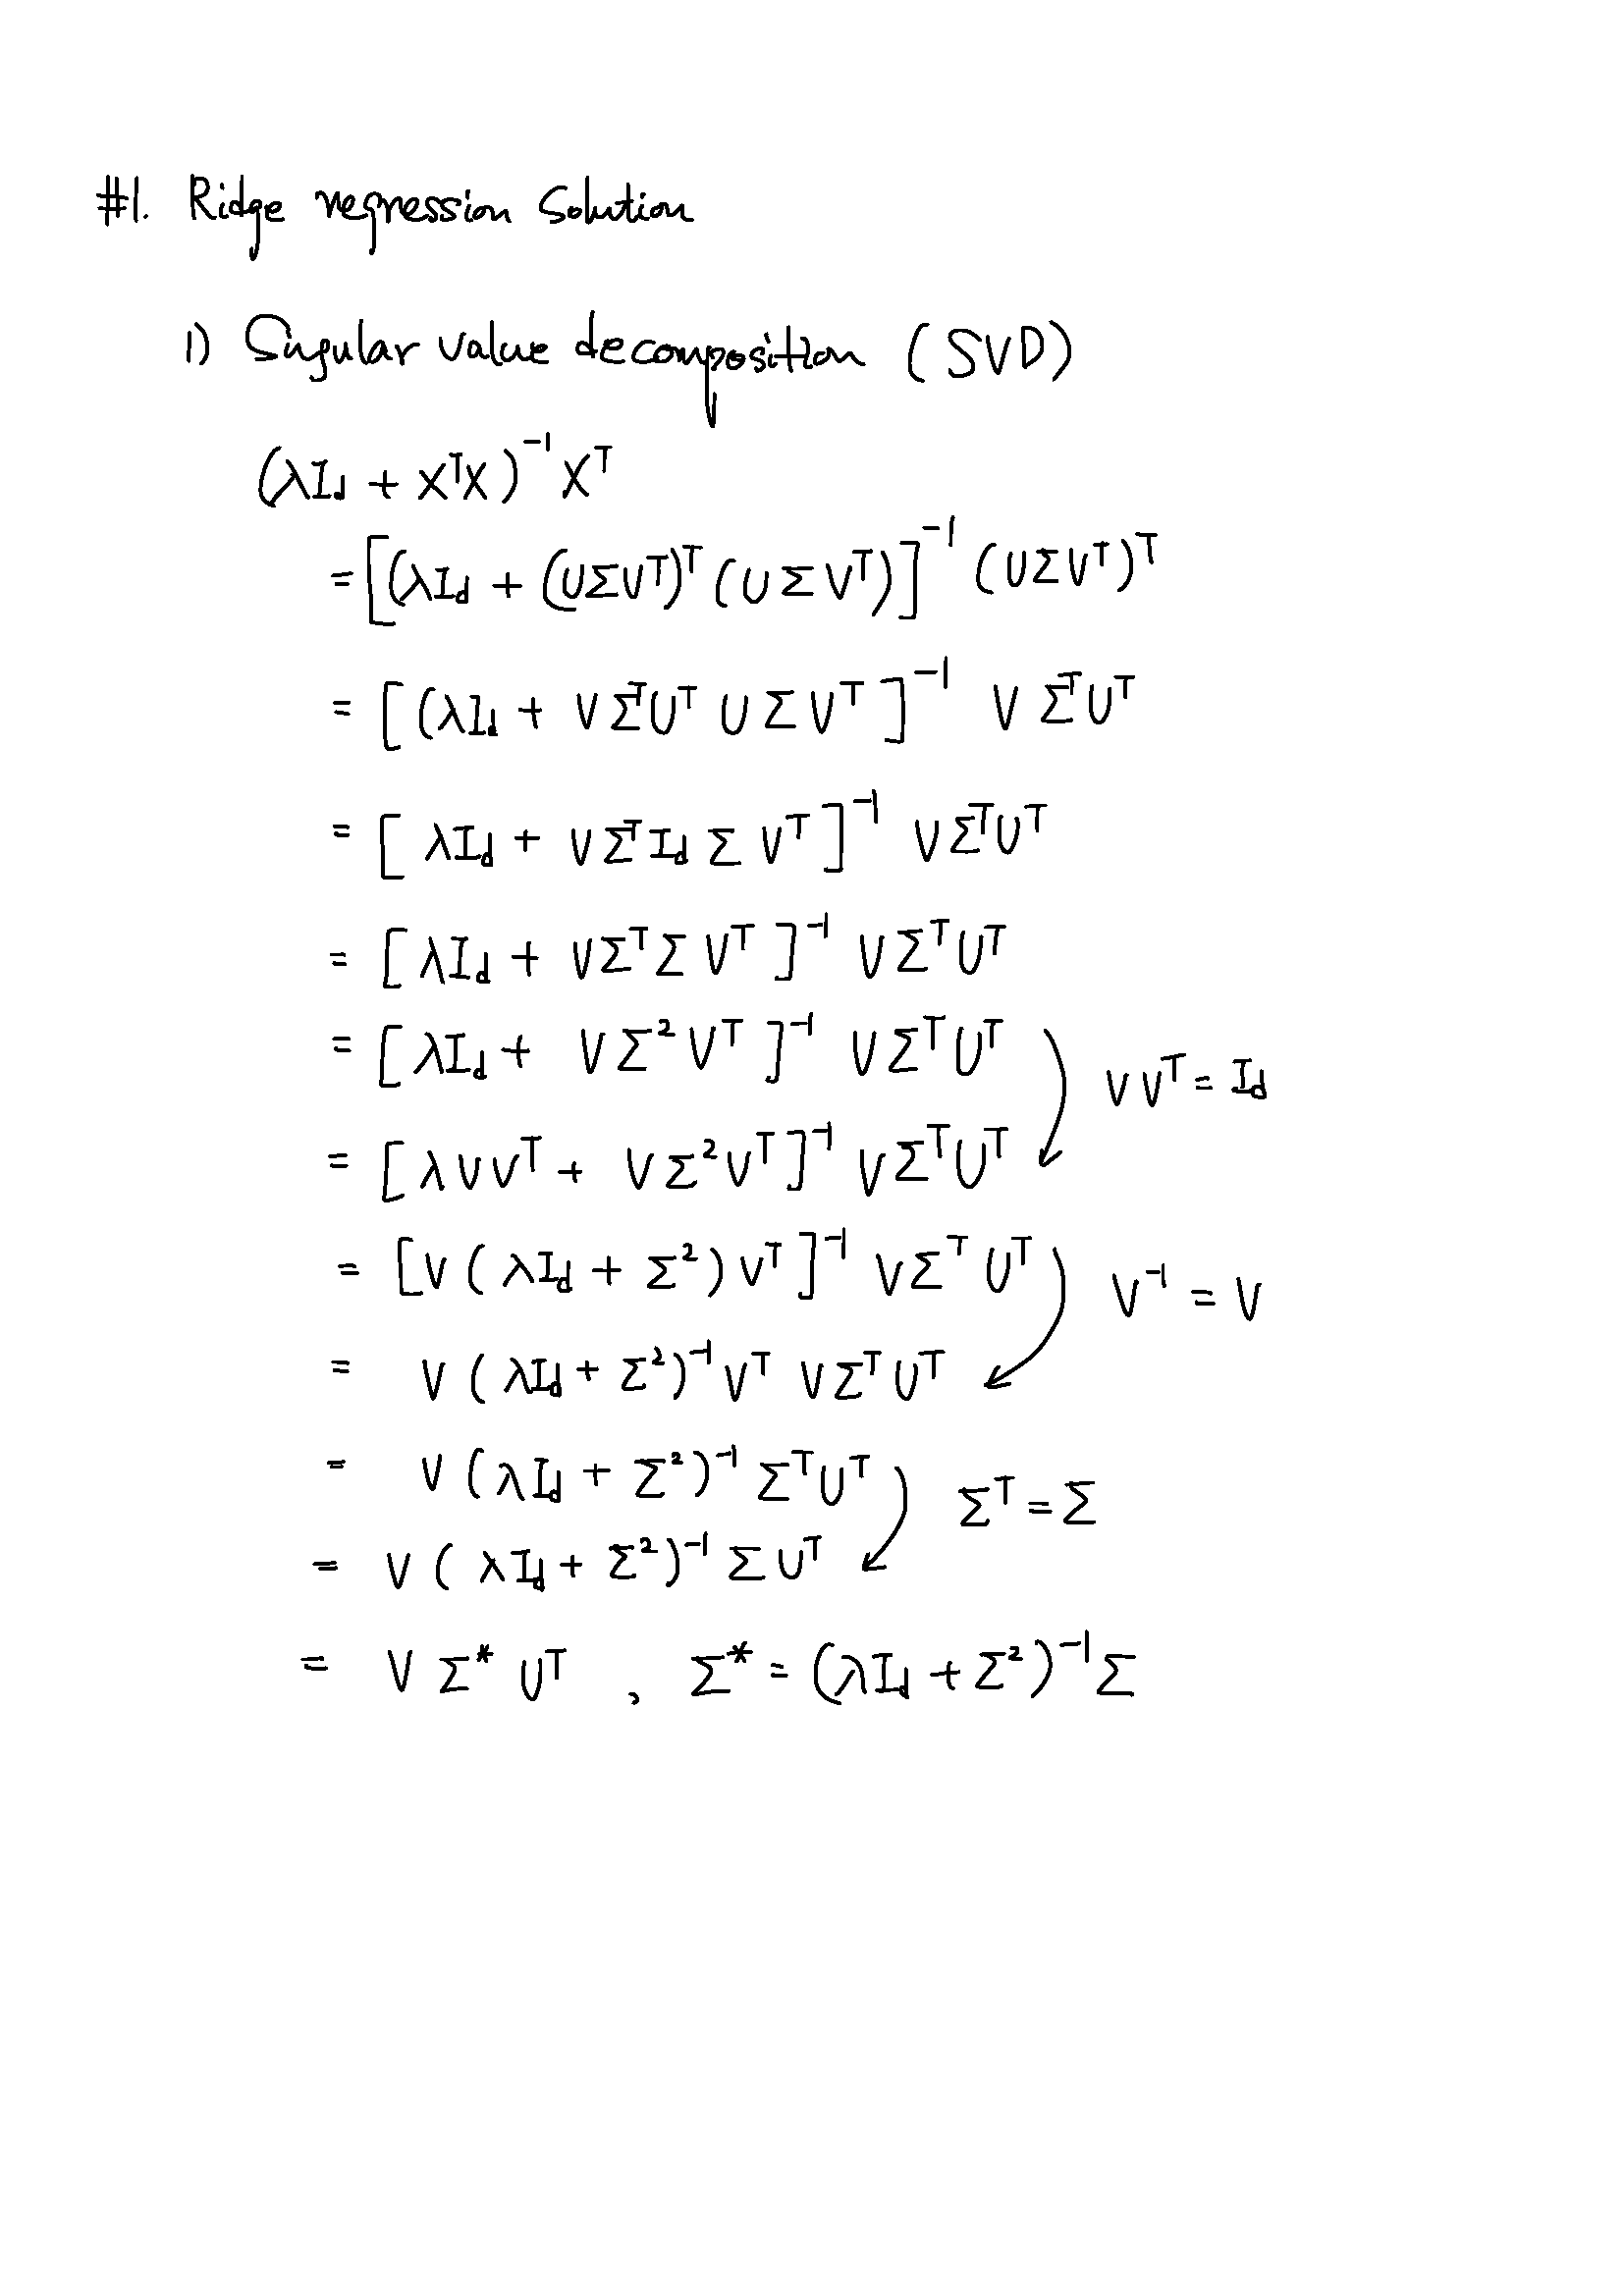 #1. Ridge regression Solution
1) Singular value decomposition (SVD)
(λI_d + X^T X)^{-1} X^T
= [(λI_d + (UΣV^T)^T (UΣV^T)]^{-1} (UΣV^T)^T
= [(λI_d + VΣ^T U^T UΣV^T]^{-1} VΣ^T U^T
= [λI_d + VΣ^T I_d Σ V^T]^{-1} VΣ^T U^T
= [λI_d + VΣ^T Σ V^T]^{-1} VΣ^T U^T
= [λI_d + VΣ² V^T]^{-1} VΣ^T U^T
VV^T = I_d
= [λVV^T + VΣ² V^T]^{-1} VΣ^T U^T
= [V(λI_d + Σ²)V^T]^{-1} VΣ^T U^T
V^{-1} = V
= V(λI_d + Σ²)^{-1} V^T VΣ^T U^T
= V(λI_d + Σ²)^{-1} Σ^T U^T
Σ^T = Σ
= V(λI_d + Σ²)^{-1} ΣU^T
= VΣ* U^T , Σ* = (λI_d + Σ²)^{-1} Σ